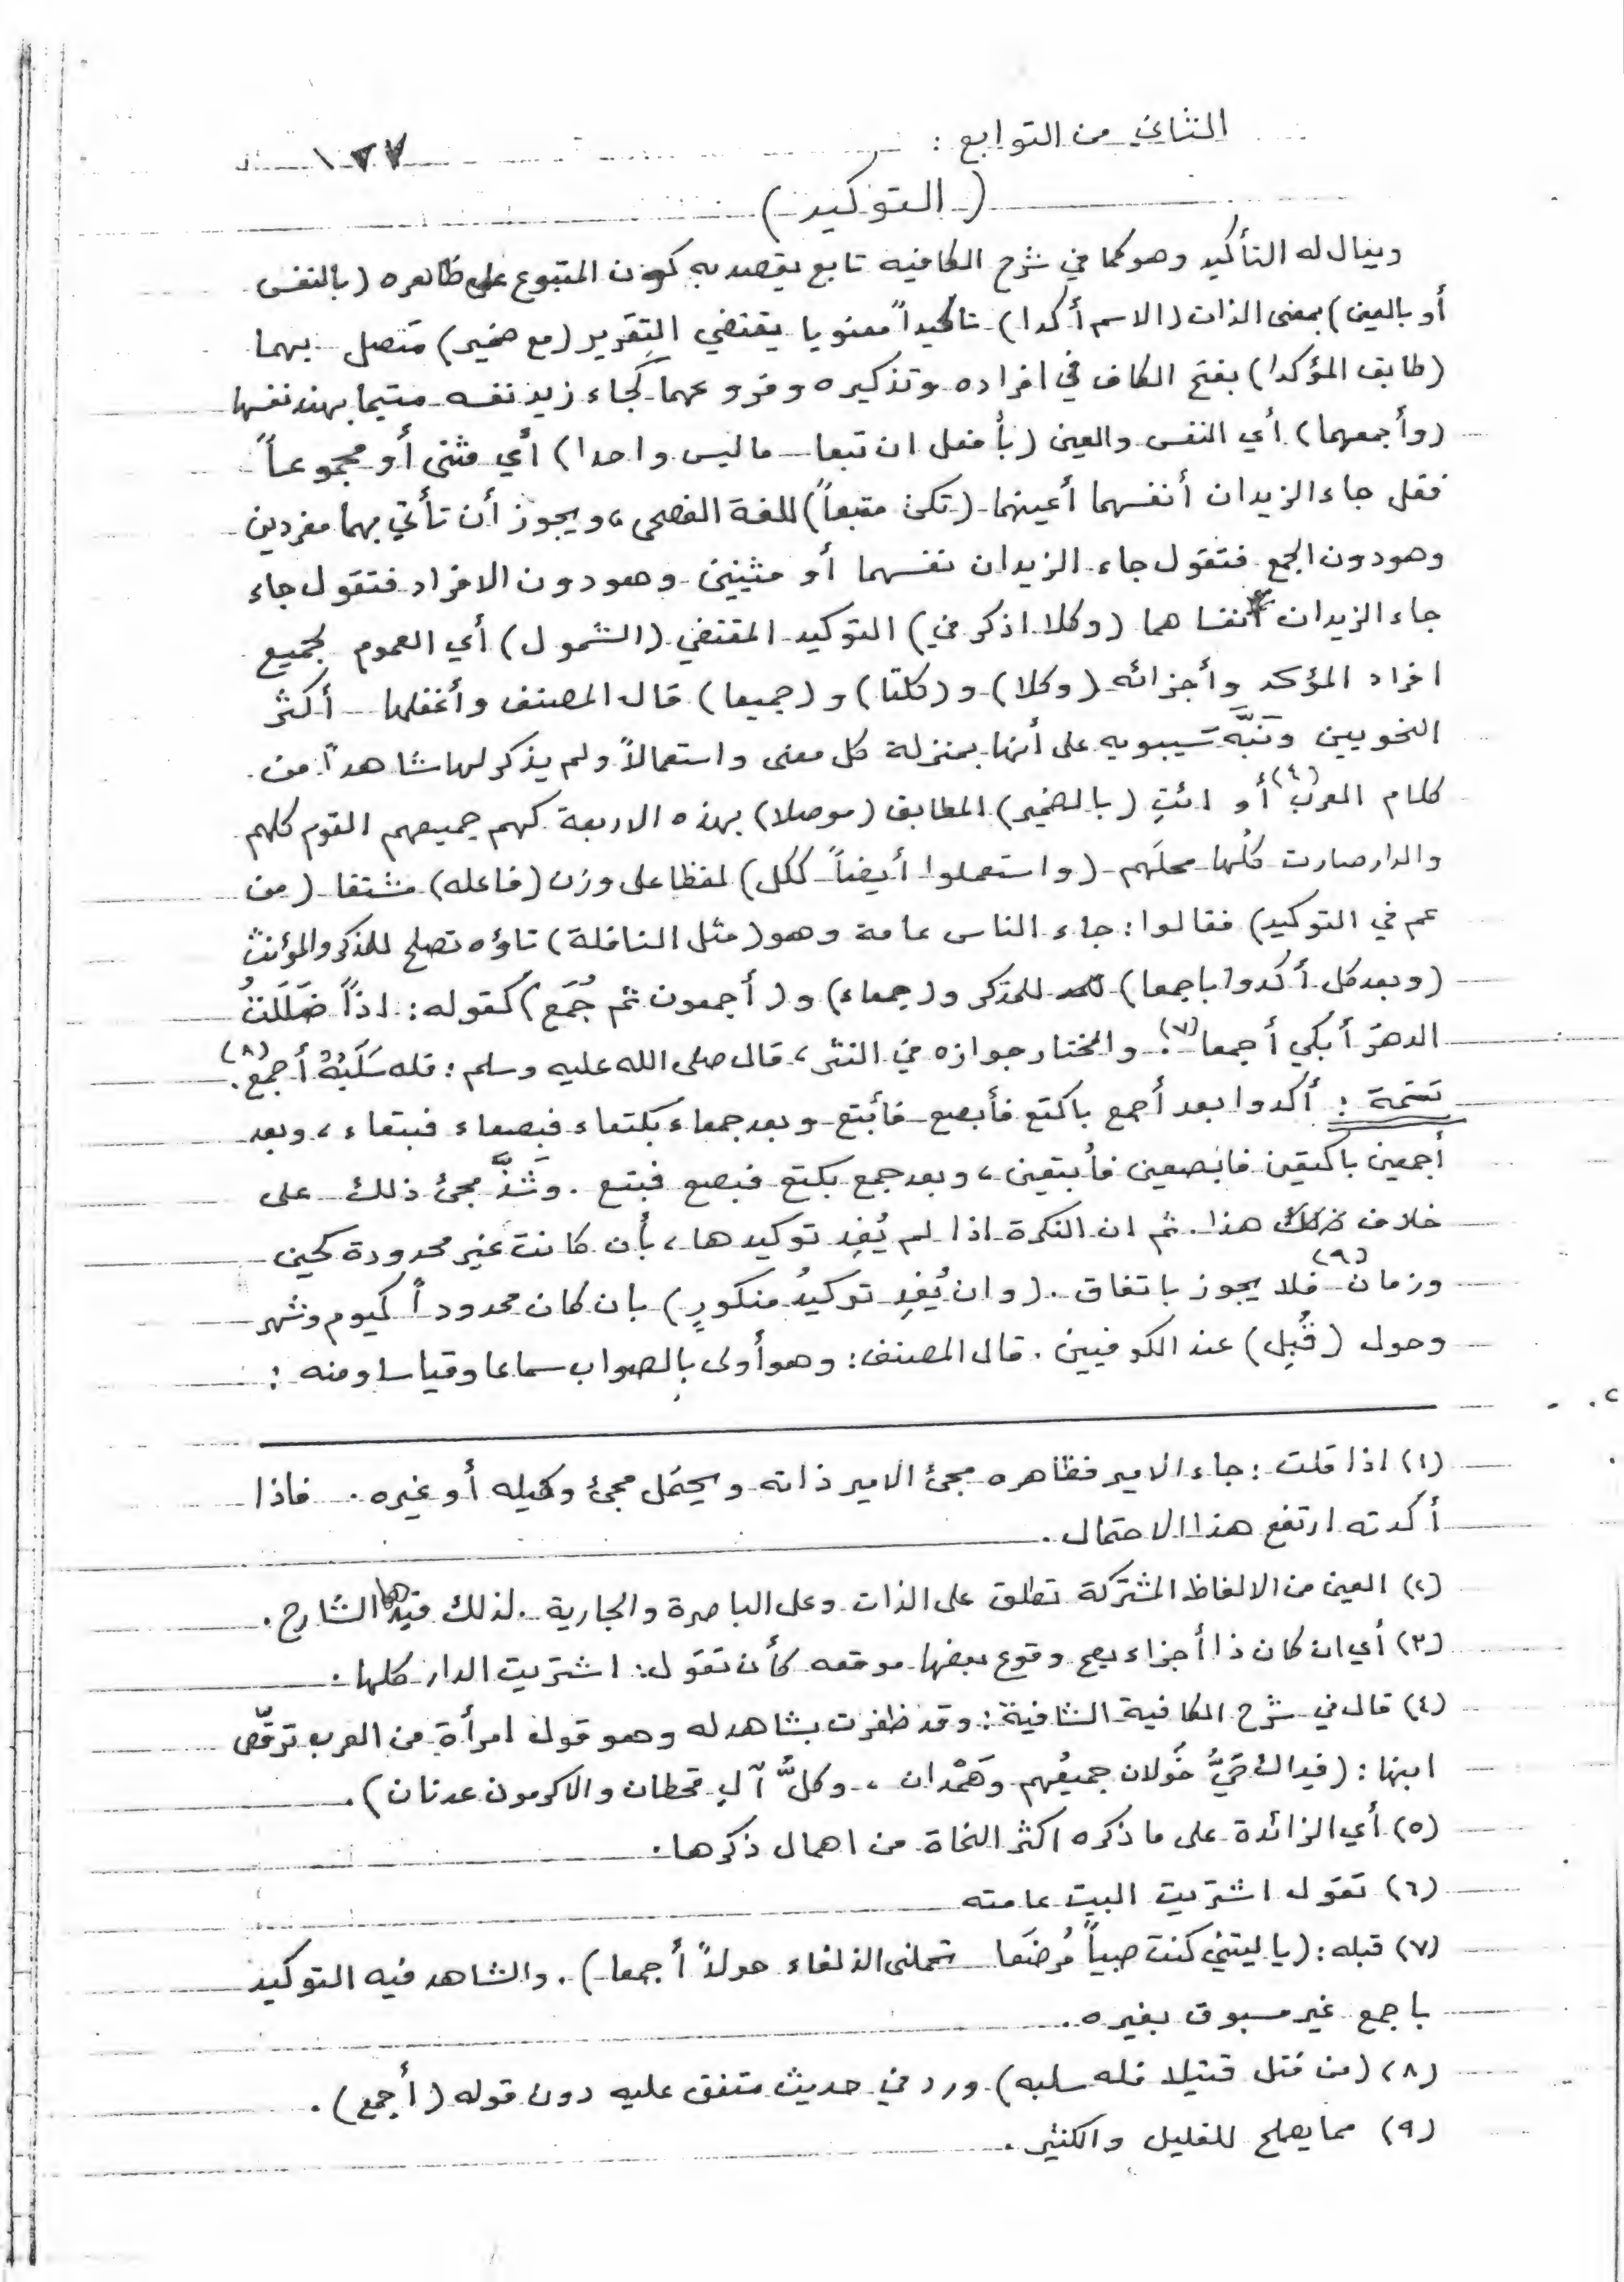 الثاني من التوابع :
١٢٧
( التوكيد )
ويقال له التأكيد وهو كما في شرح الكافيه تابع يقصد به كون المتبوع على ظاهره (بالنفس
أو بالعين) بمعنى الذات (الاسم أكدا) تاكيداً معنويا يقتضي التقرير (مع ضمير) متصل بهما
(طابق المؤكدا) بفتح الكاف في افراده وتذكيره وفروعهما كجاء زيد نفسه متيما بهند نفسها
(وأجمعهما) أي النفس والعين (بأفعل ان تبعا ما ليس واحدا) أي مثنى أو مجموعاً
فقل جاء الزيدان أنفسهما أعينهما (تكن متبعاً) للغة الفصحى، ويجوز أن تأتي بهما مفردين
وهو دون الجمع فتقول جاء الزيدان نفسهما أو مثنيين وهو دون الافراد فتقول جاء
جاء الزيدان نفسا هما (وكلا اذكر في) التوكيد المقتضي (الشمول) أي العموم لجميع
افراد المؤكد وأجزائه (وكلا) و (كلتا) و (جميعا) قال المصنف وأغفلها أكثر
النحويين ونَبَّهَ سيبويه على أنها بمنزلة كل معنى واستعمالاً ولم يذكر لها شاهداً من
كلام العرب (٤) أو ائتِ (بالضمير) المطابق (موصلا) بهذه الاربعة كهم جميعهم القوم كلهم
والدار صارت كُلها محلَهم (واستعملوا أيضاً ككل) لفظا على وزن (فاعله) مشتقا (من
عم في التوكيد) فقالوا : جاء الناس عامة وهو (مثل النافلة) تاؤه تصلح للمذكر والمؤنث
(وبعد كل أكدوا باجمعا) للمذكر و (جمعاء) و (أجمعون ثم جُمَع) كقوله : اذاً ضَلَلتُ
الدهرَ أبكي أجمعا (٧) . والمختار جوازه في النثر، قال صلى الله عليه وسلم : فله سَلَبُهُ أجمع (٨) .
تتمة : أكدوا بعد أجمع باكتع فأبصع فأبتع وبعد جمعاء بكتعاء فبصعاء فبتعاء، وبعد
أجمعين باكتعين فابصعين فأبتعين، وبعد جمع بكتع فبصع فبتع . وشَذَّ مجئ ذلك على
خلاف هذا . ثم ان النكرة اذا لم يُفِد توكيدها، بأن كانت غير محدودة كحين
وزمان (٩) فلا يجوز باتفاق . (وان يُفِدِ توكيدُ منكورٍ) بان كان محدوداً كيوم وشهر
وحول (قُبِل) عند الكوفيين . قال المصنف : وهو أولى بالصواب سماعا وقياسا ومنه :
(١) اذا قلت : جاء الامير فظاهره مجئ الامير ذاته ويحتمل مجئ وكيله أو غيره . فاذا
أكدته ارتفع هذا الاحتمال .
(٢) العين من الالفاظ المشتركة تطلق على الذات وعلى الباصرة والجارية . لذلك قيدها الشارح .
(٣) أي ان كان ذا أجزاء يصح وقوع بعضها موقعه كأن تقول : اشتريت الدار كلها .
(٤) قال في شرح الكافية الشافية : وقد ظفرت بشاهد له وهو قول امرأة من العرب ترقّص
ابنها : (فداك حَيُّ خَولان جميعُهم وهَمْدان ، وكلُّ آلِ قحطان والاكرمون عدنان) .
(٥) أي الزائدة على ما ذكره اكثر النحاة من اهمال ذكرها .
(٦) تقول اشتريت البيت عامته
(٧) قبله : (يا ليتني كنت صبياً مُرضَعا تحملني الذلفاء حولاً أجمعا) . والشاهد فيه التوكيد
باجمع غير مسبوق بغيره .
(٨) (من قتل قتيلا فله سلبه) ورد في حديث متفق عليه دون قوله (أجمع) .
(٩) مما يصلح للقليل والكثير .